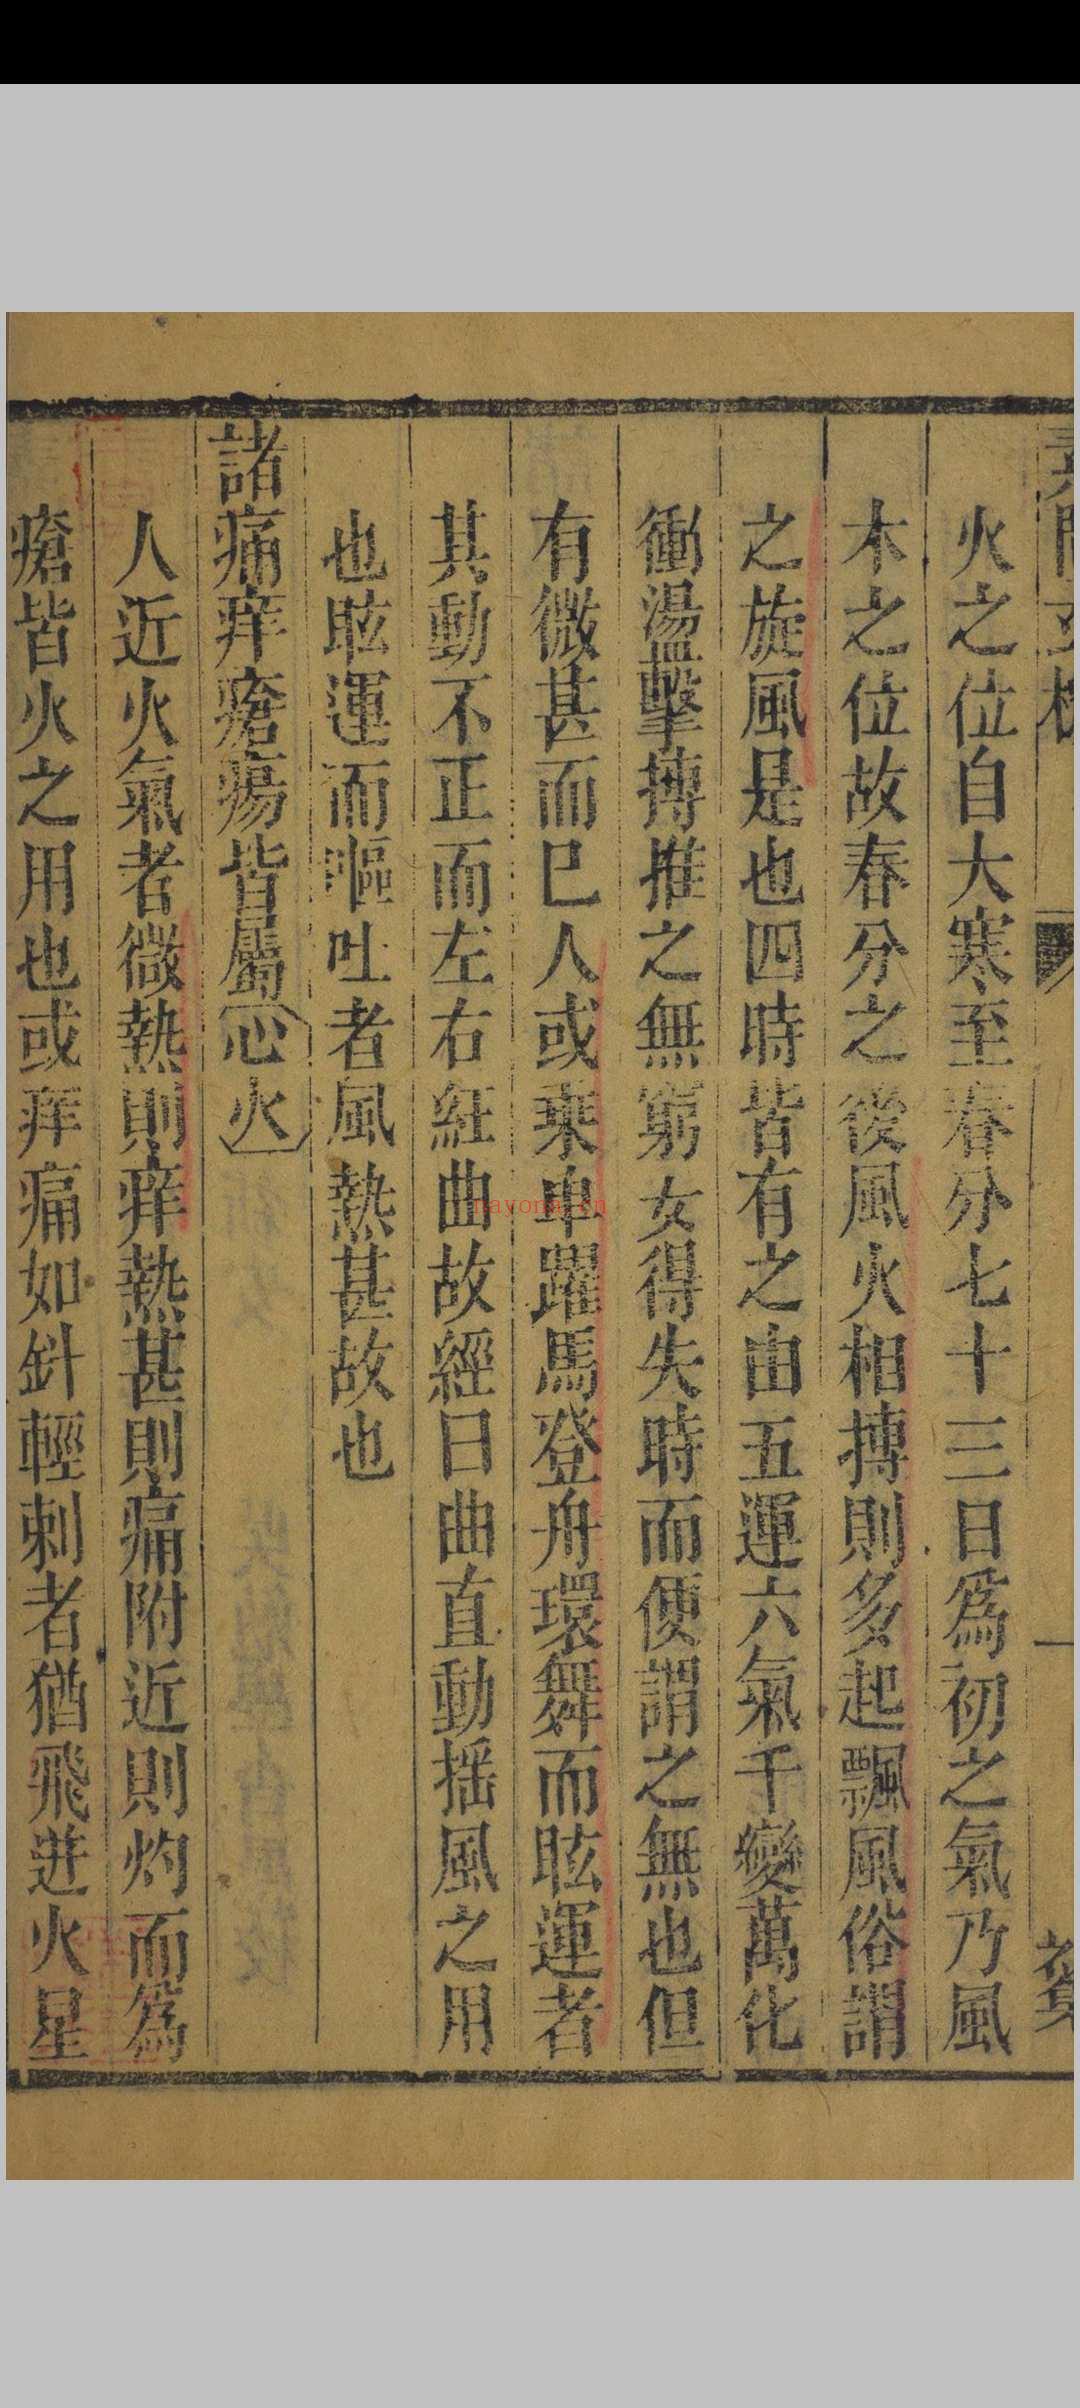 素問玄機
一
火之位自大寒至春分七十三日爲初之氣乃風
木之位故春分之後風火相摶則多起飄風俗謂
之旋風是也四時皆有之由五運六氣千變萬化
衝盪擊摶推之無窮女得失時而便謂之無也但
有微甚而巳人或乘車躍馬登舟環舞而眩運者
其動不正而左右紆曲故經曰曲直動揺風之用
也眩運而嘔吐者風熱甚故也
諸痛痒瘡瘍皆屬心火
人近火氣者微熱則痒熱甚則痛附近則灼而爲
瘡皆火之用也或痒痛如針輕刺者猶飛迸火星
nayona.cn